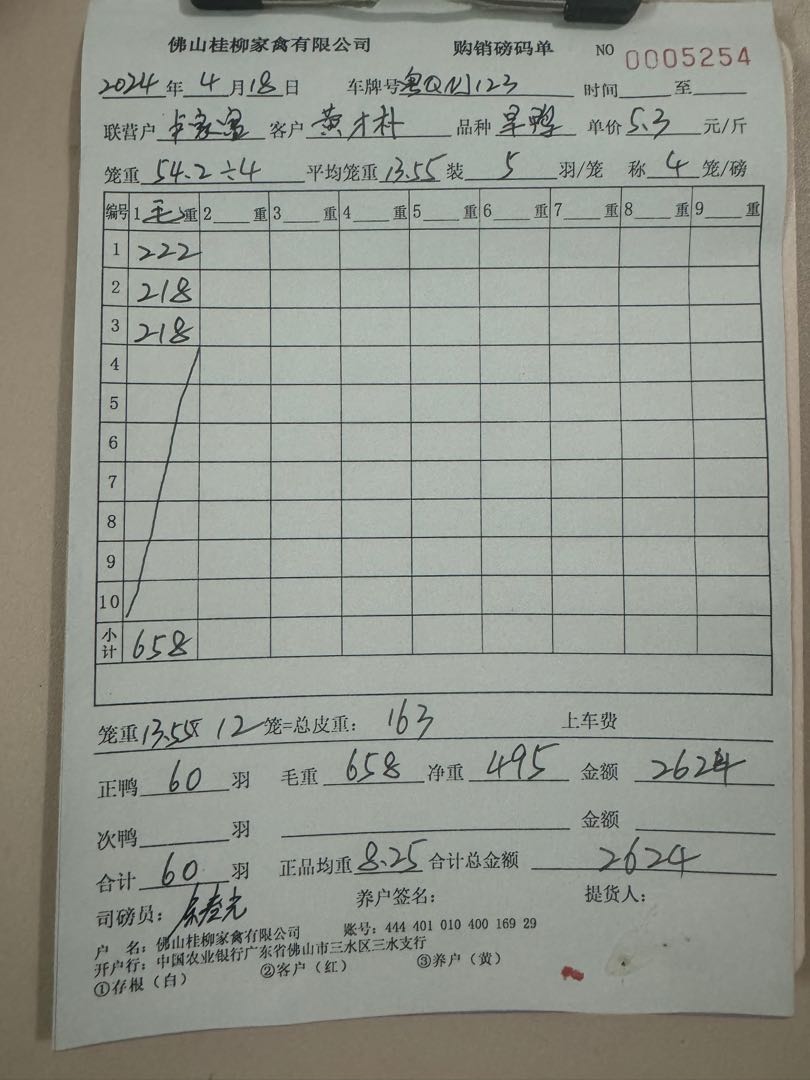 佛山桂柳家禽有限公司 购销磅码单 NO 0005254
2024年4月18日 车牌号粤QNJ123 时间____至____
联营户 客户 黄才朴 品种 旱鸭 单价5.3元/斤
笼重 54.2÷4 平均笼重13.55装 5 羽/笼 称 4 笼/磅
编号 1毛重 2____重 3____重 4____重 5____重 6____重 7____重 8____重 9____重
1 222
2 218
3 218
4
5
6
7
8
9
10
小计 658
笼重13.55X 12笼=总皮重: 163 上车费
正鸭 60 羽 毛重 658 净重 495 金额 2624
次鸭____羽 金额
合计 60 羽 正品均重8.25合计总金额 2624
司磅员: 养户签名: 提货人:
户 名: 佛山桂柳家禽有限公司 账号: 444 401 010 400 169 29
开户行: 中国农业银行广东省佛山市三水区三水支行
①存根(白) ②客户(红) ③养户(黄)